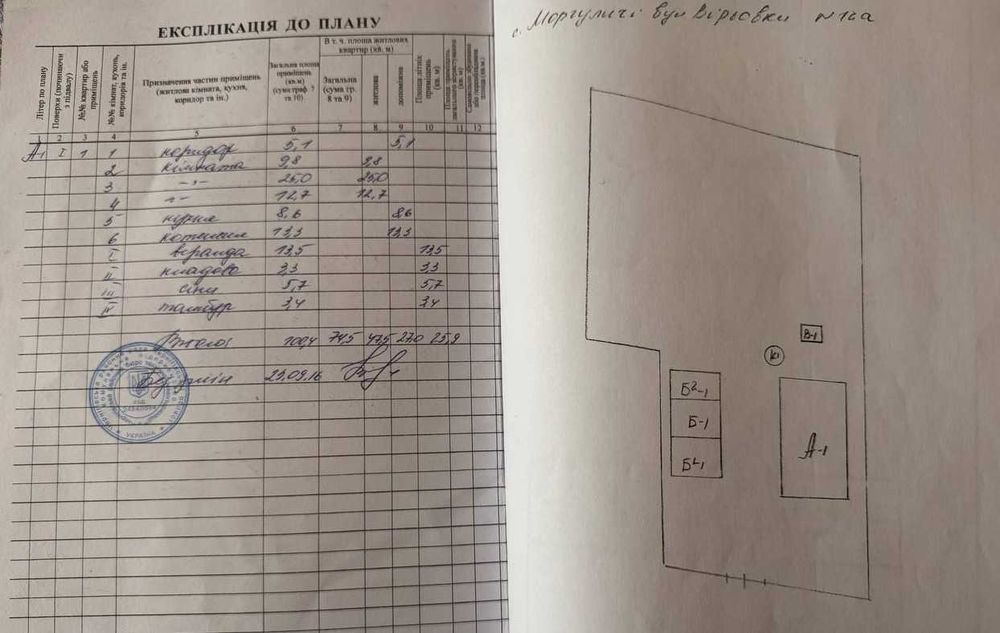 ЕКСПЛІКАЦІЯ ДО ПЛАНУ
Літер по плану
Поверхи (починаючи з підвалу)
№№ квартир або приміщень
№№ кімнат, кухонь, коридорів та ін.
Призначення частин приміщень (житлова кімната, кухня, коридор та ін.)
Загальна площа приміщень (кв.м) (сума граф. 7 та 10)
В т. ч. площа житлових квартир (кв. м)
Загальна (сума гр. 8 та 9)
житлова
допоміжна
Площа літніх приміщень (кв. м)
1 2 3 4 5 6 7 8 9 10 11 12
А-1 I 1 1 коридор 5,1 5,1
2 кімната 9,8 9,8
3 -"- 25,0 25,0
4 -"- 12,7 12,7
5 кухня 8,6 8,6
6 котельня 13,3 13,3
I веранда 13,5 13,5
II кладова 3,3 3,3
III сіни 5,7 5,7
IV тамбур 3,4 3,4
Всього 100,4 74,5 47,5 27,0 25,9
23.09.16
УКРАЇНА
с. Моргуличі вул Вірговки №16а
В-1
К1
Б²-1
Б-1
Б¹-1
А-1